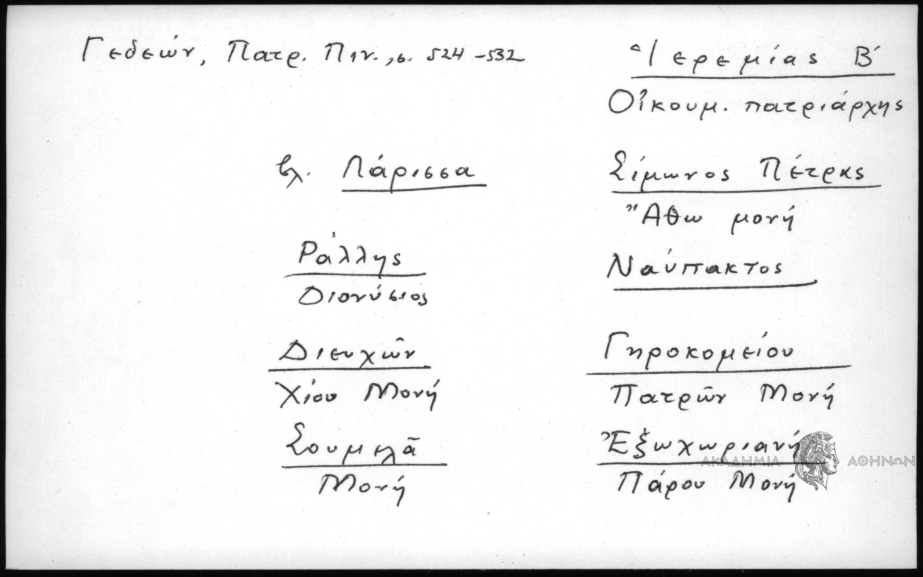 Γεδεών, Πατρ. Πιν., σ. 524-532
Ἱερεμίας Β΄
Οἰκουμ. πατριάρχης
βλ. Λάρισσα
Σίμωνος Πέτρας
Ἄθω μονή
Ράλλης
Διονύσιος
Ναύπακτος
Διευχῶν
Χίου Μονή
Γηροκομείου
Πατρῶν Μονή
Σουμελᾶ
Μονή
Ἐξωχωριανή
Πάρου Μονή
ΑΚΑΔΗΜΙΑ ΑΘΗΝΩΝ